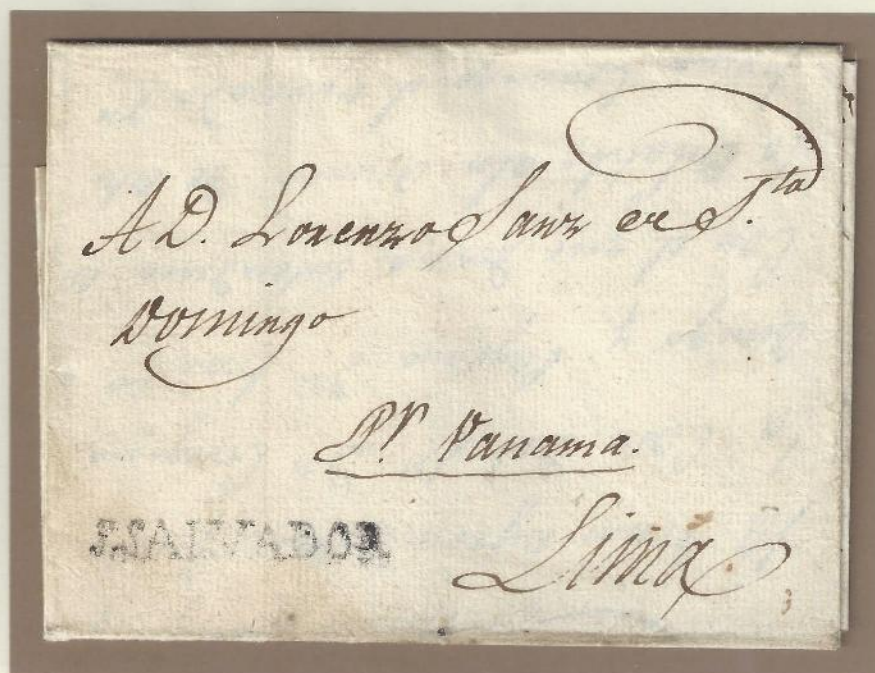 A D. Lorenzo Sanz de S.ta
Domingo
Pr Panama.
S.SALVADOR
Lima